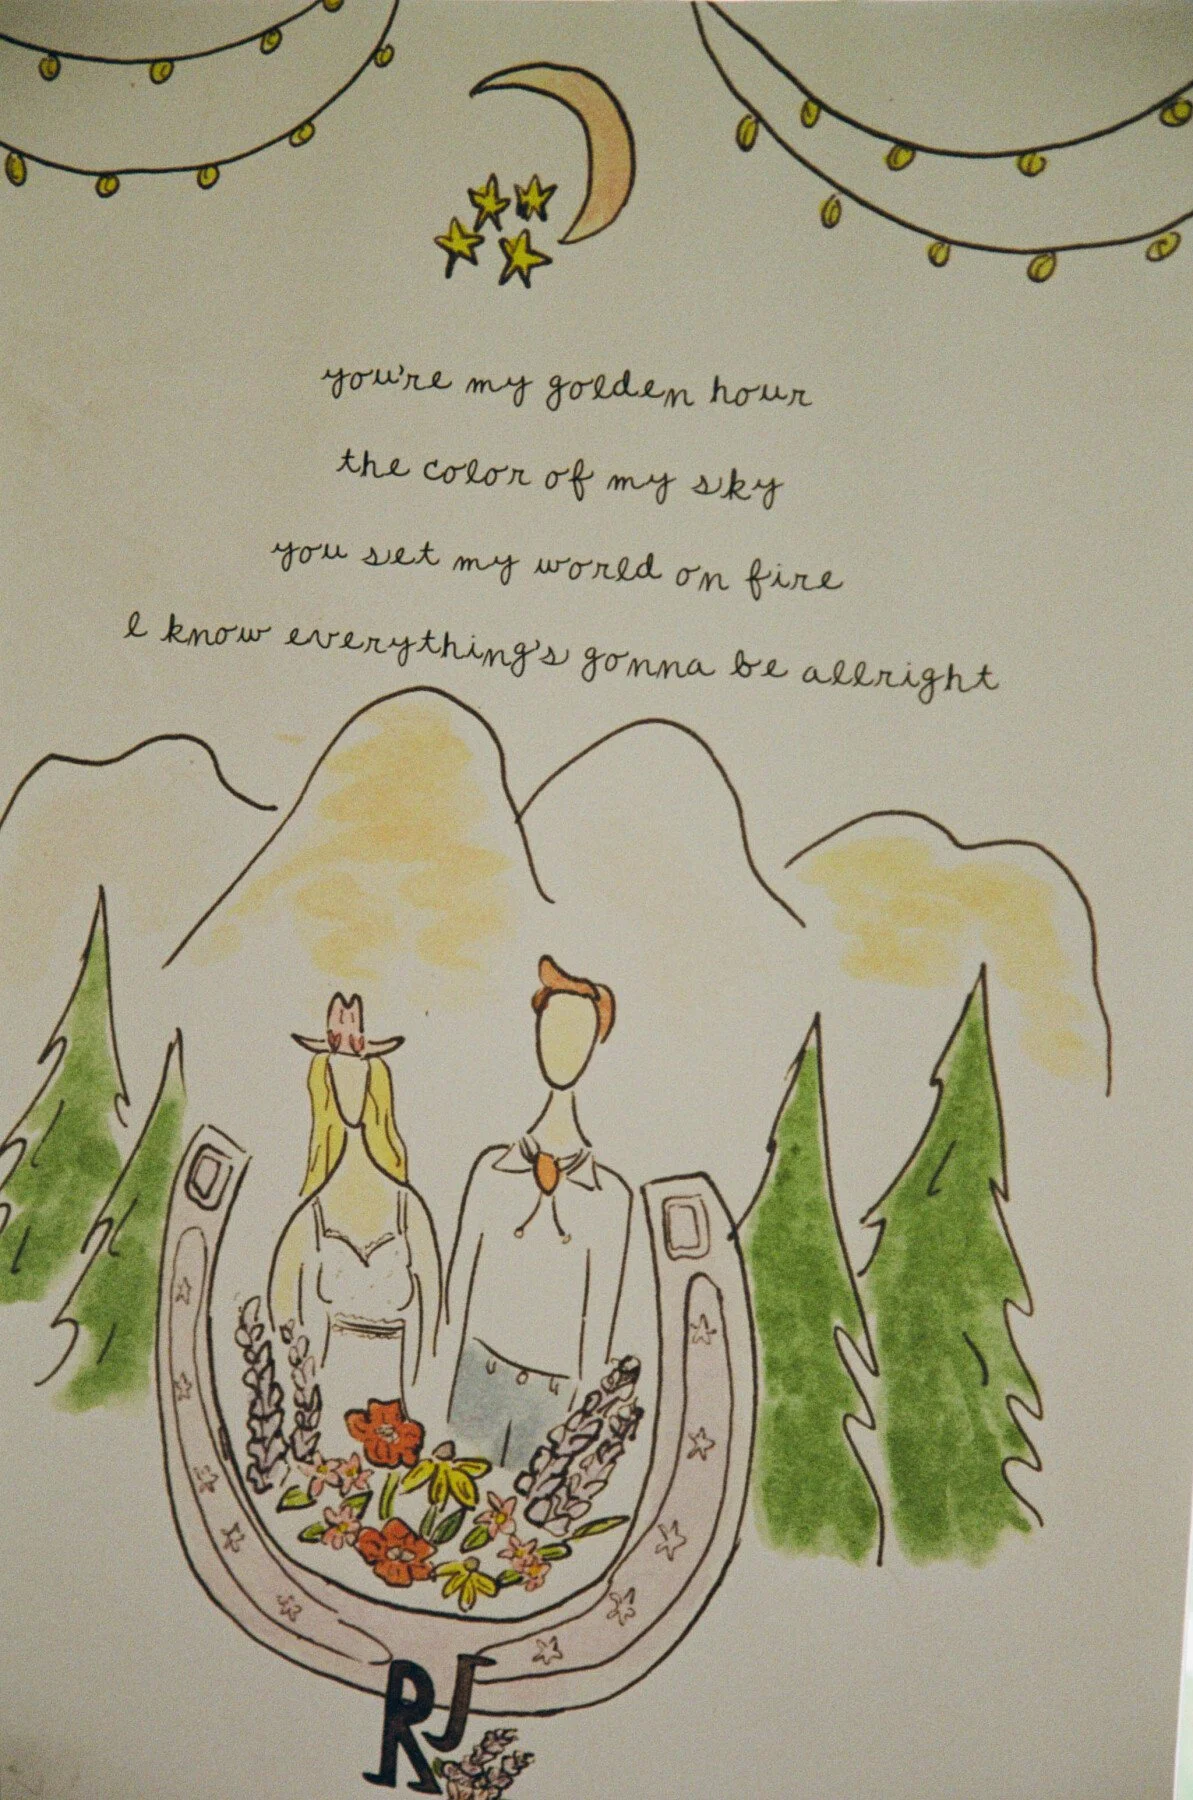 you're my golden hour
the color of my sky
you set my world on fire
I know everything's gonna be allright
RJ